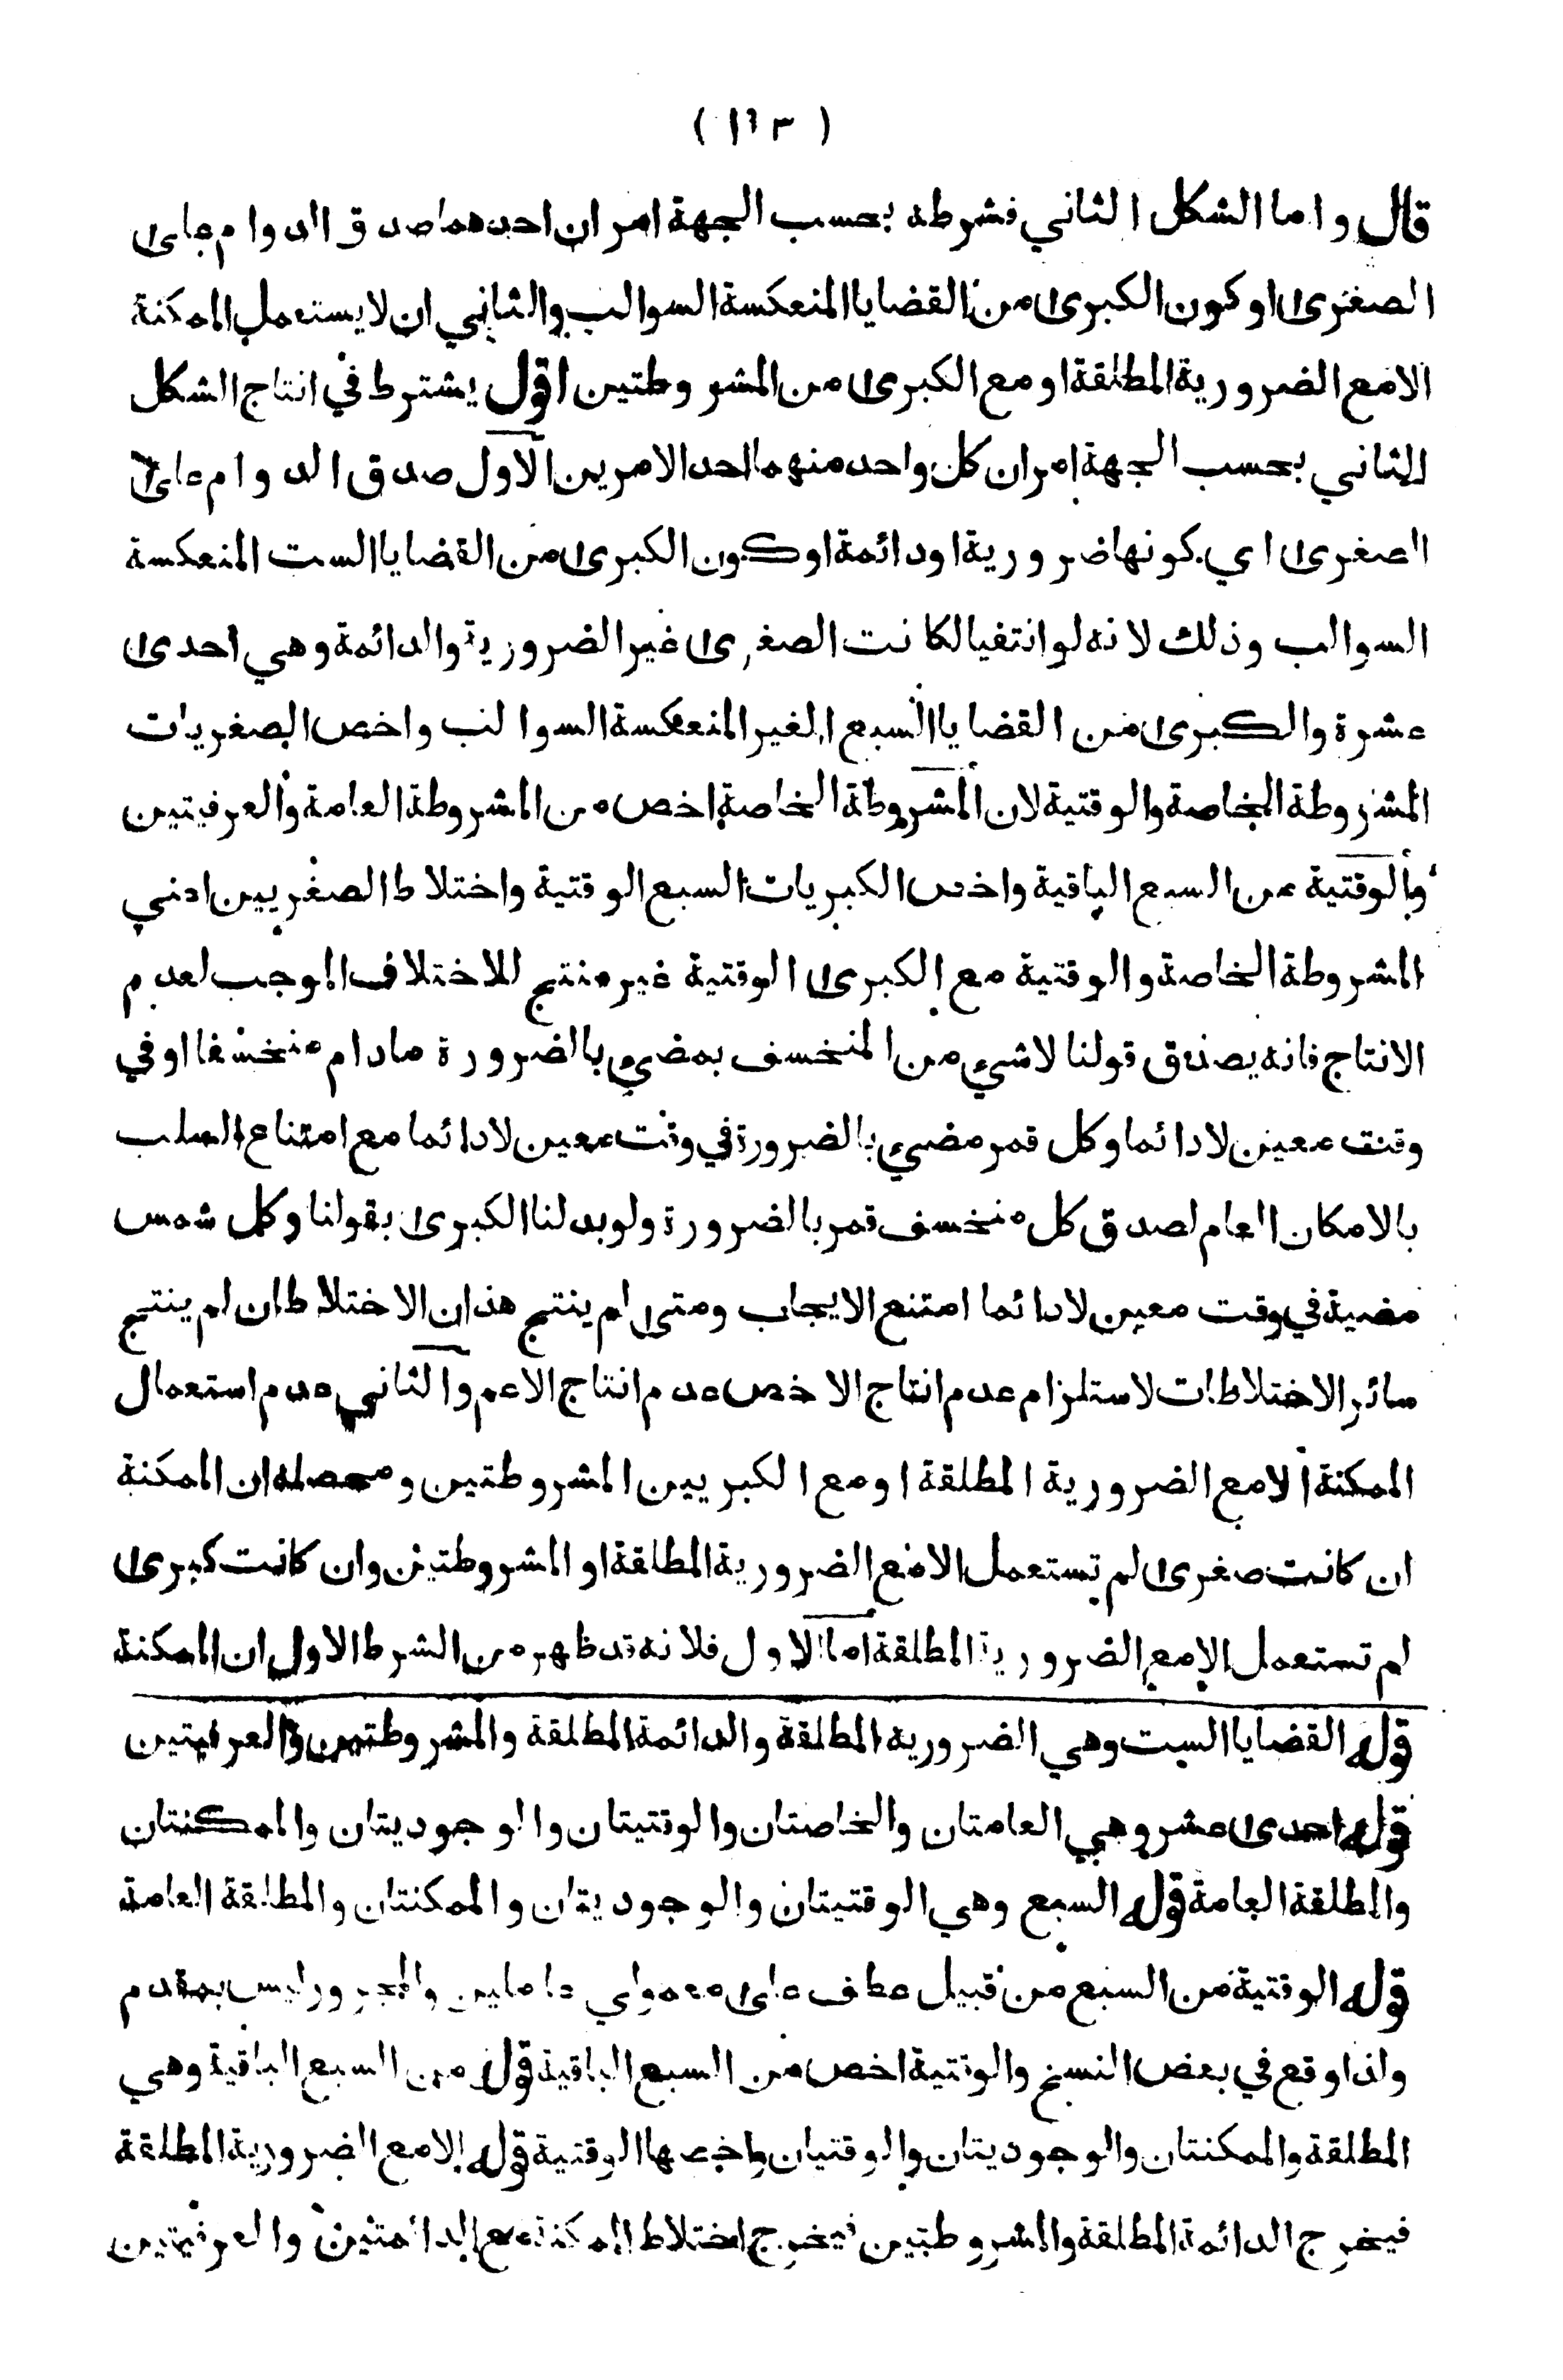 ( ١٦٣ )
قال واما الشكل الثاني فشرطه بحسب الجهة امران احدهما صدق الدوام على
الصغرى او كون الكبرى من القضايا المنعكسة السوالب والثاني ان لا يستعمل الممكنة
الا مع الضرورية المطلقة او مع الكبرى من المشروطتين اقول يشترط في انتاج الشكل
الثاني بحسب الجهة امران كل واحد منهما احد الامرين الاول صدق الدوام على
الصغرى اي كونها ضرورية او دائمة او كون الكبرى من القضايا الست المنعكسة
السوالب وذلك لانه لو انتفيا لكانت الصغرى غير الضرورية والدائمة وهي احدى
عشرة والكبرى من القضايا السبع الغير المنعكسة السوالب واخص الصغريات
المشروطة الخاصة والوقتية لان المشروطة الخاصة اخص من المشروطة العامة والعرفيتين
والوقتية من السبع الباقية واخص الكبريات السبع الوقتية واختلاط الصغريين اعني
المشروطة الخاصة والوقتية مع الكبرى الوقتية غير منتج للاختلاف الموجب لعدم
الانتاج فانه يصدق قولنا لاشيء من المنخسف بمضيء بالضرورة مادام منخسفا او في
وقت معين لادائما وكل قمر مضيء بالضرورة في وقت معين لادائما مع امتناع السلب
بالامكان العام لصدق كل منخسف قمر بالضرورة ولو بدلنا الكبرى بقولنا وكل شمس
مضية في وقت معين لادائما امتنع الايجاب ومتى لم ينتج هذان الاختلاطان لم ينتج
سائر الاختلاطات لاستلزام عدم انتاج الاخص عدم انتاج الاعم والثاني عدم استعمال
الممكنة الا مع الضرورية المطلقة او مع الكبريين المشروطتين ومحصله ان الممكنة
ان كانت صغرى لم تستعمل الا مع الضرورية المطلقة او المشروطتين وان كانت كبرى
لم تستعمل الا مع الضرورية المطلقة اما الاول فلانه قد ظهر من الشرط الاول ان الممكنة
قوله القضايا الست وهي الضرورية المطلقة والدائمة المطلقة والمشروطتين والعرفيتين
قوله احدى عشر وهي العامتان والخاصتان والوقتيتان والوجوديتان والممكنتان
والمطلقة العامة قوله السبع وهي الوقتيتان والوجوديتان والممكنتان والمطلقة العامة
قوله الوقتية من السبع من قبيل عطف على معمولي عاملين والمجرور ليس بمقدم
واذا وقع في بعض النسخ والوقتية اخص من السبع الباقية قوله من السبع الباقية وهي
المطلقة والممكنتان والوجوديتان والوقتيان واخصها الوقتية قوله الا مع الضرورية المطلقة
فيخرج الدائمة المطلقة والمشروطتين فيخرج اختلاط الممكنة مع الدائمتين والعرفيتين